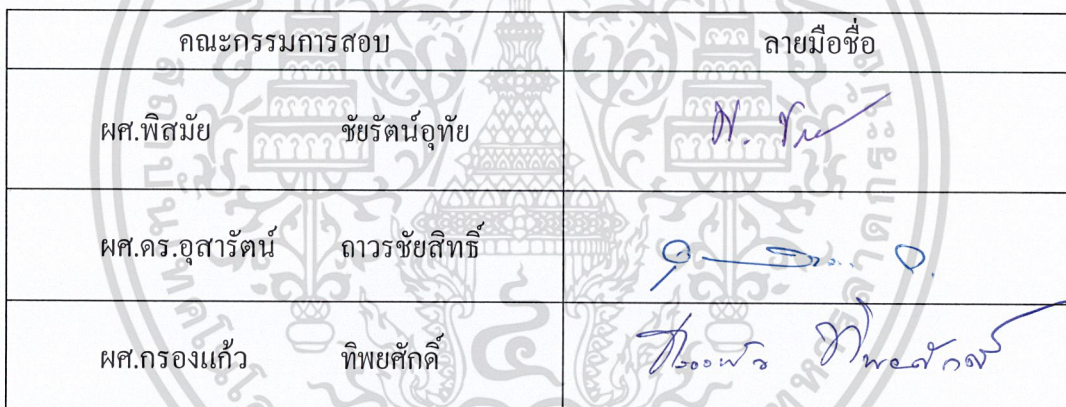 คณะกรรมการสอบ ลายมือชื่อ
ผศ.พิสมัย ชัยรัตน์อุทัย
ผศ.ดร.อุสารัตน์ ถาวรชัยสิทธิ์
ผศ.กรองแก้ว ทิพยศักดิ์ กรองแก้ว ทิพยศักดิ์